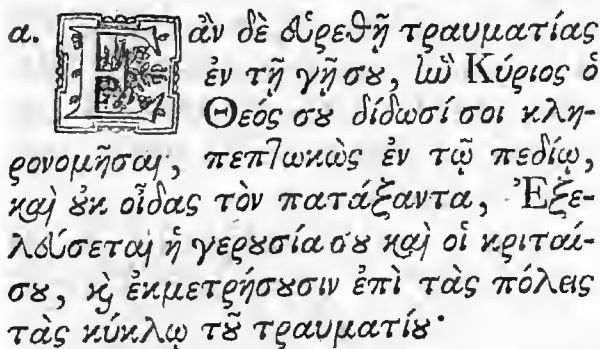 α. Εὰν δὲ εὑρεθῇ τραυματίας
ἐν τῇ γῇ σου, ἣν Κύριος ὁ
Θεός σου δίδωσί σοι κλη-
ρονομῆσαι, πεπτωκὼς ἐν τῷ πεδίῳ,
καὶ οὐκ οἶδας τὸν πατάξαντα, Ἐξε-
λεύσεται ἡ γερουσία σου καὶ οἱ κριταί-
σου, καὶ ἐκμετρήσουσιν ἐπὶ τὰς πόλεις
τὰς κύκλῳ τοῦ τραυματίου·